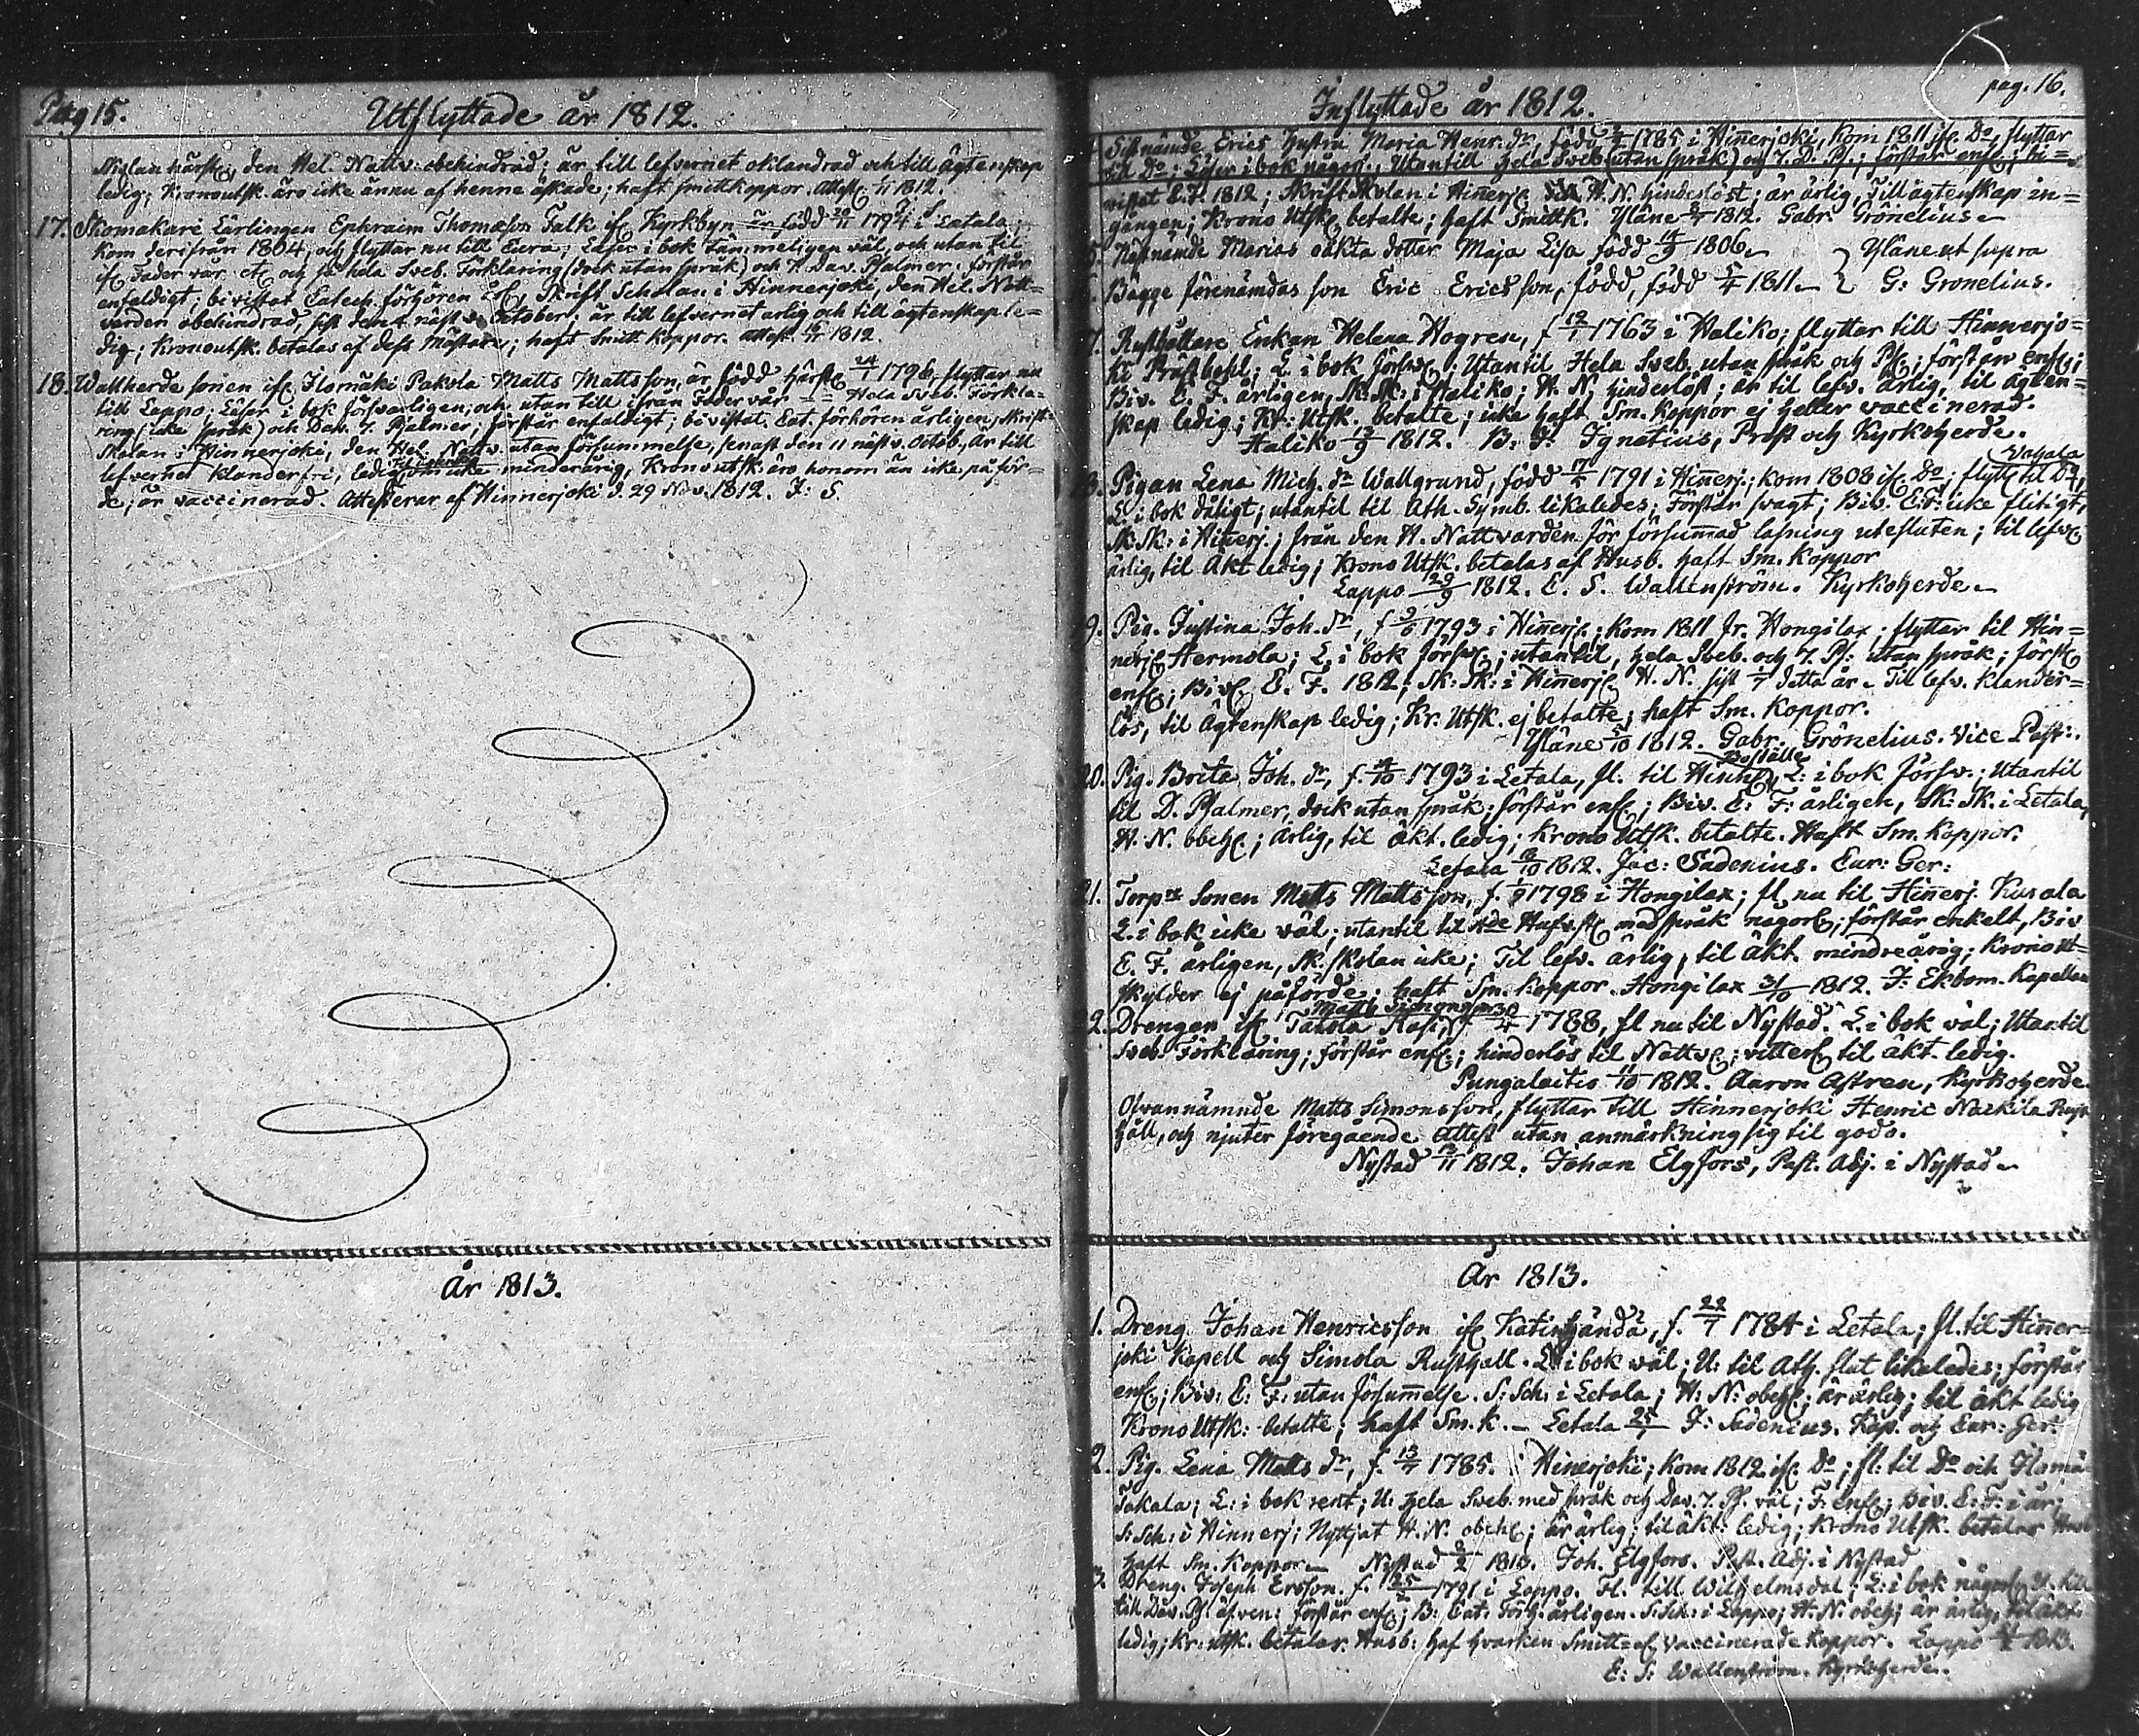 Pag 15.
Utflyttade år 1812.
den Hel. Nattv: obehindrad: är till lefvernet oklandrad och till ägtenskap
ledig; Kronoutsk. äro icke ännu af henne äskade; haft smittkoppor. Attest. 1812.
17. Skomakare Lärlingen Ephraim Thomæson Falk if. Kyrkbyn född 1794 i Letala;
Kom derifrån 1804, och flyttar nu till Eura; Läser i bok tammeligen väl, och utan til
if. Fader vår etc. och så hela Sveb. Förklaring (dock utan språk) och 7 Dav. Psalmer. förstår
enfaldigt; bivistat Catech. förhören Skrift. Scholan i Hinnerjoki, den Hel. Natt-
varden obehindrad, sist den 4 näst v. October; är till lefvernet ärlig och till ägtenskap le-
dig; Kronoutsk. betalas af dess Mästare; haft Smitt koppor. Attest. 1812.
18. Wallherde sonen if. Ilomäki Pakola Matts Mattsson, är född härst. 1796, flyttar nu
till Lappo; Läser i bok försvarligen; och utan till ifrån Fader vår Hela Sveb. Förkla-
ring (icke språk) och Dav. 7. Psalmer; förstår enfaldigt; bivistat Cat. förhören årligen; Skrift-
skolan i Hinnerjoki, den Hel. Nattv. utan försummelse, senast den 11 näst v. Octob, är till
lefvernet Klanderfri, minderårig, Kronoutsk: äro honom än icke påför-
de; är vaccinerad. Attesterar af Hinnerjoki d. 29 Nov. 1812. J: S.
År 1813.
pag. 16.
Inflyttade år 1812.
Sistnämde Erics hustru Maria Henr: dr, född 1785 i Hinerjoki, Kom 1811 if. Do, flyttar
till Do; Läser i bok någorl., Utantill hela Sveb. (utan språk) och 7. D. Ps.; förstår enf.; bi-
vistat C. F. 1812; Skrift Skolan i Hinerj. H. N. hinderlöst; är ärlig, Till ägtenskap in-
gången; Krono Utsk. betalte; haft Smittk. Yläne 1812. Gabr. Grönelius
Nästnämde Marias oäkta dotter Maja Lisa född 1806. Yläne ut supra
Bägge förenämdas son Eric Ericsson, född, född 1811. G: Grönelius.
7. Rusthållare Enkan Helena Hogren, f. 1763 i Haliko; flyttar till Hinnerjo-
ki Prästbohl; L. i bok försv. Utantil Hela Sveb. utan språk och Ps.; förstår enf.;
Biv. C. F. årligen, Sk. Sk: i Haliko; H. N. hinderlöst; är til lefv. ärlig, til ägten-
skap ledig; Kr: Utsk. betalte; icke haft Sm. Koppor ej heller vaccinerad.
Haliko 1812. B. J. Ignatius, Prost och Kyrkoherde.
Wahala
8. Pigan Lena Mich. dr Wallgrund, född 1791 i Hinerj.; Kom 1808 if. Do; flytt til Do,
L. i bok dåligt; utantil til Ath. Symb. likaledes; Förstår svagt; Biv. C. F. icke flitigt,
Sk: Sk: i Hinerj.; från den H. Nattvarden för försummad läsning utesluten; til lefv.
ärlig, til Äkt ledig; Krono Utsk. betalas af Husb. haft Sm. Koppor
Lappo 1812. E. S. Wallenström. Kyrkoherde
9. Pig. Justina Joh. dr, f. 1793 i Hinerj.; Kom 1811 fr. Hongilax; flyttar til Hin-
nerj. Hermola; L. i bok försv.; utantil, hela Sveb. och 7. Ps: utan språk; förstr.
enf.; Biv. C. F. 1812; Sk: Sk: i Hinerj. H. N. sist detta år. Til lefv. klander-
lös, til Ägtenskap ledig; Kr. Utsk. ej betalte; haft Sm. Koppor.
Yläne 1812. Gabr. Grönelius. Vice Past:.
Boställe
20. Pig. Brita Joh. dr, f. 1793 i Letala, fl. til Hinerj. L: i bok försv.; Utantil
til D. Psalmer, dock utan språk; förstår enf.; Biv. C: F: årligen, Sk: Sk. i Letala,
H: N. obeh.; ärlig, til äkt. ledig; Krono Utsk. betalte. Haft Sm. Koppor.
Letala 1812. Jac: Sadenius. Cur: Ger:
21. Torpre Sonen Matts Mattsson, f. 1798 i Hongilax; fl. nu til Hinerj. Kusala
L. i bok icke väl; utantil til 4de Hufvst. med språk någorl; förstår enkelt, Biv
C. F. årligen, Sk: skolan icke; Til lefv. ärlig, til äkt. mindreårig; Kronout-
skylder ej påförde; haft Sm. Koppor. Hongilax 1812. J: Ekbom. Kapellan
Matts Simonsson
2. Drengen if. Tatola Kasi, f. 1788, fl nu til Nystad. L. i bok väl; Utantil
Sveb. Förklaring; förstår enf.; hinderlös til Nattv.; vitterl. til äkt. ledig.
Pungalaitio 1812. Aaron Astren, Kyrkoherde.
Ofvannämnde Matts Simonsson, flyttar till Hinnerjoki Henric Nackila Rust
håll, och njuter föregående Attest utan anmärkning sig til godo.
Nystad 1812. Johan Elgfors, Past. Adj. i Nystad
År 1813.
1. Dreng Johan Henricsson if. Katinhändä, f. 22/7 1784 i Letala; fl. til Hiner-
joki Kapell och Simola Rusthall. L. i bok väl; U: til Ath. slut likaledes; förstår
enf.; Biv: C: F: utan försummelse. S: Sch: i Letala; H: N: obeh.; är ärlig; til äkt ledig
Krono Utsk: betalte; haft Sm. K. Letala J: Sadenius. Kap. och Cur: Ger:
2. Pig. Lena Matts dr, f. 13/7 1785. i Hinerjoki; Kom 1812 if. Do; fl: til Do och Ilomä
Takala; L: i bok rent; U. hela Sveb. med språk och Dav. 7. Ps. väl; F: enf.; Biv. C: F: i år;
S: Sch: i Hinnerj; Nyttjat H. N. obeh.; är ärlig; til äkt. ledig; Krono Utsk. betalar Husb
haft Sm. Koppor. Nystad 1813. Joh. Elgfors. Past. Adj. i Nystad
3. Dreng. Joseph Ersson. f. 1791 i Lappo. Fl. till Wilhelmsdal; L: i bok någorl. U. till
till Dav. Ps. äfven; förstår enf.; B: Cat: Förh. årligen. S: Sch: i Lappo; H: N: obeh; är ärlig, til äkt
ledig; Kr. utsk. betalar Husb: haf hvarken Smitt- el. vaccinerade Koppor. Lappo 1813.
E: S: Wallenström. Kyrkoherde.